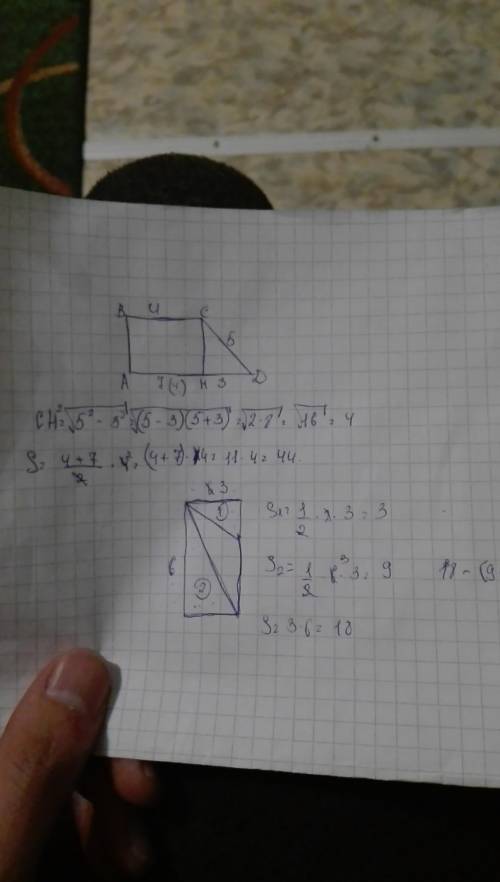 B 4 C
5
A 7(4) H 3 D
CH² = √5² - 3² = √(5 - 3)(5 + 3) = √2·8 = √16 = 4
S = 4+7/2 · = (4+7)·4 = 11·4 = 44
3
①
6
②
S₁ = 1/2 · 2 · 3 = 3
S₂ = 1/2 · 6³ · 3 = 9 18 - (9
S = 3·6 = 18